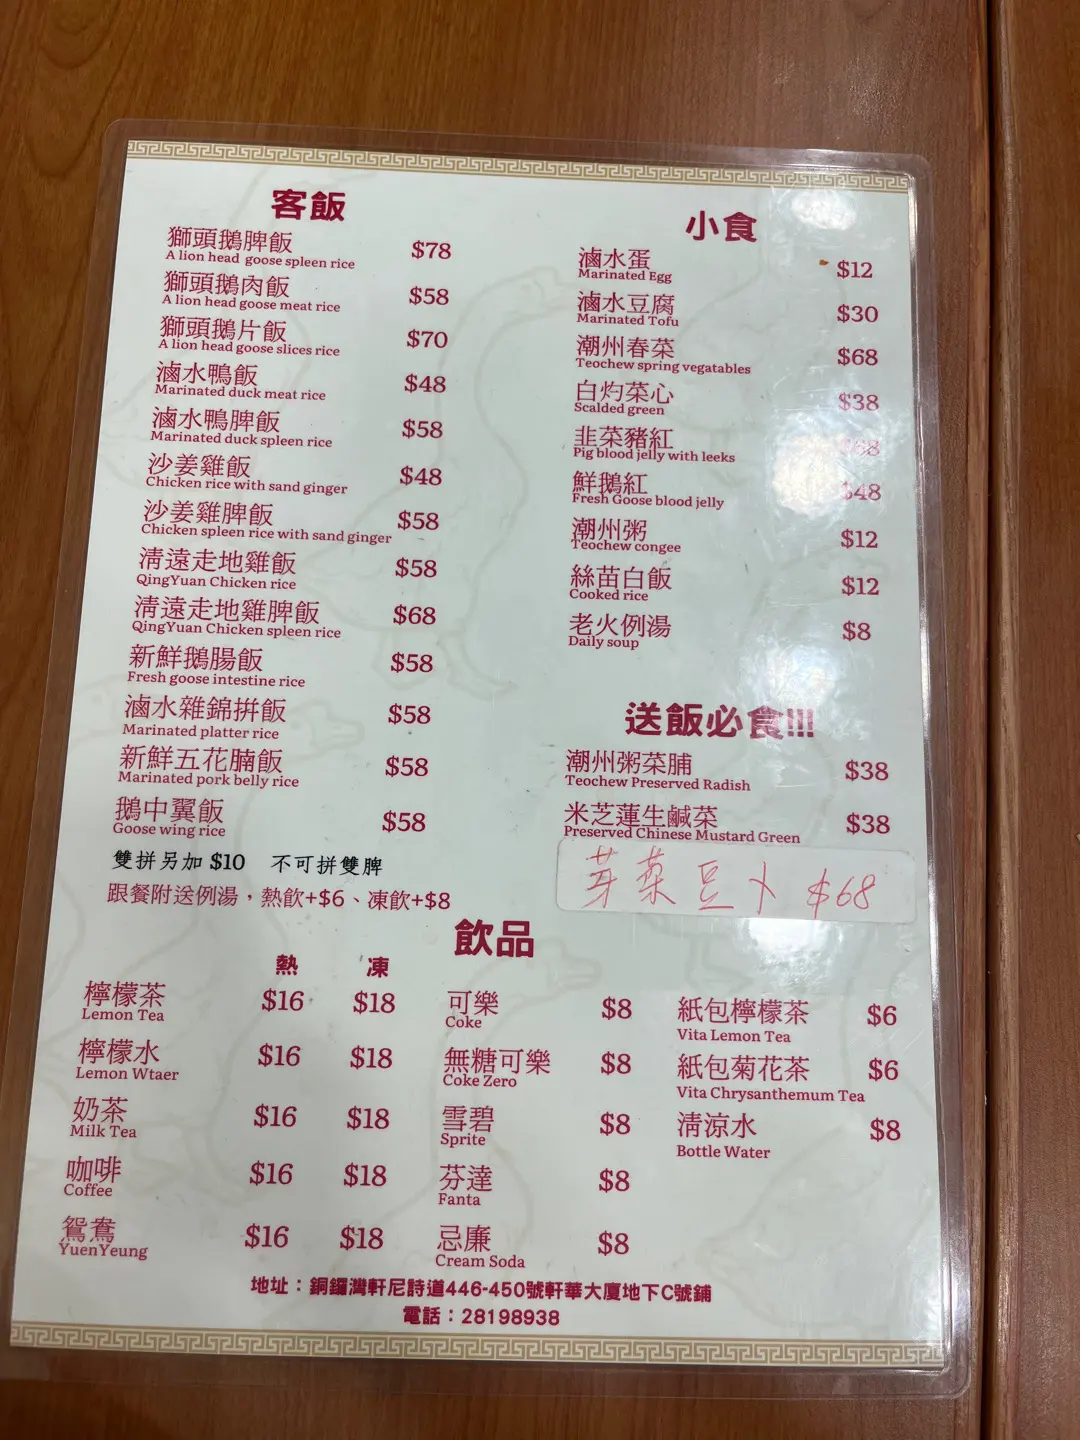 客飯
獅頭鵝脾飯 $78
A lion head goose spleen rice
獅頭鵝肉飯 $58
A lion head goose meat rice
獅頭鵝片飯 $70
A lion head goose slices rice
滷水鴨飯 $48
Marinated duck meat rice
滷水鴨脾飯 $58
Marinated duck spleen rice
沙姜雞飯 $48
Chicken rice with sand ginger
沙姜雞脾飯 $58
Chicken spleen rice with sand ginger
清遠走地雞飯 $58
QingYuan Chicken rice
清遠走地雞脾飯 $68
QingYuan Chicken spleen rice
新鮮鵝腸飯 $58
Fresh goose intestine rice
滷水雜錦拼飯 $58
Marinated platter rice
新鮮五花腩飯 $58
Marinated pork belly rice
鵝中翼飯 $58
Goose wing rice
雙拼另加 $10 不可拼雙脾
跟餐附送例湯，熱飲+$6、凍飲+$8
小食
滷水蛋 $12
Marinated Egg
滷水豆腐 $30
Marinated Tofu
潮州春菜 $68
Teochew spring vegatables
白灼菜心 $38
Scalded green
韭菜豬紅 $68
Pig blood jelly with leeks
鮮鵝紅 $48
Fresh Goose blood jelly
潮州粥 $12
Teochew congee
絲苗白飯 $12
Cooked rice
老火例湯 $8
Daily soup
送飯必食!!!
潮州粥菜脯 $38
Teochew Preserved Radish
米芝蓮生鹹菜 $38
Preserved Chinese Mustard Green
芽菜豆卜 $68
飲品
熱 凍
檸檬茶 $16 $18
Lemon Tea
檸檬水 $16 $18
Lemon Wtaer
奶茶 $16 $18
Milk Tea
咖啡 $16 $18
Coffee
鴛鴦 $16 $18
YuenYeung
可樂 $8
Coke
無糖可樂 $8
Coke Zero
雪碧 $8
Sprite
芬達 $8
Fanta
忌廉 $8
Cream Soda
紙包檸檬茶 $6
Vita Lemon Tea
紙包菊花茶 $6
Vita Chrysanthemum Tea
清涼水 $8
Bottle Water
地址：銅鑼灣軒尼詩道446-450號軒華大廈地下C號鋪
電話：28198938